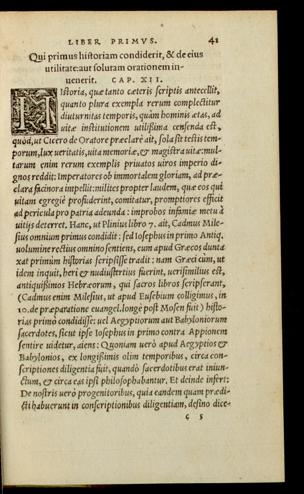 LIBER PRIMVS. 41
Qui primus historiam condiderit, & de eius
utilitate: aut solutam orationem in-
uenerit. CAP. XII.
HIstoria, quæ tanto cæteris scriptis antecellit,
quanto plura exempla rerum complectitur
diuturnitas temporis, quàm hominis ætas, ad
uitæ institutionem utilißima censenda est,
quòd, ut Cicero de Oratore præclarè ait, sola sit testis tem-
porum, lux ueritatis, uita memoriæ, & magistra uitæ: mul-
tarum enim rerum exemplis priuatos uiros imperio di-
gnos reddit: Imperatores ob immortalem gloriam, ad præ-
clara facinora impellit: milites propter laudem, quæ eos qui
uitam egregiè profuderint, comitatur, promptiores efficit
ad pericula pro patria adeunda: improbos infamiæ metu à
uitijs deterret. Hanc, ut Plinius libro 7. ait, Cadmus Mile-
sius omnium primus condidit: sed Iosephus in primo Antiq.
uolumine rectius omnino sentiens, cum apud Græcos dunta
xat primùm historias scripsisse tradit: nam Græci cum, ut
idem inquit, heri & nudiustertius fuerint, uerisimilius est,
antiquißimos Hebræorum, qui sacros libros scripserant,
(Cadmus enim Milesius, ut apud Eusebium colligimus, in
10. de præparatione euangel. longè post Mosen fuit) histo-
rias primò condidisse: uel Aegyptiorum aut Babyloniorum
sacerdotes, sicut ipse Iosephus in primo contra Appionem
sentire uidetur, aiens: Quoniam uerò apud Aegyptios &
Babylonios, ex longißimis olim temporibus, circa con-
scriptiones diligentia fuit, quandò sacerdotibus erat iniun-
ctum, & circa eas ipsi philosophabantur. Et deinde infert:
De nostris uerò progenitoribus, quia eandem quam prædi-
cti habuerunt in conscriptionibus diligentiam, desino dice-
c 5